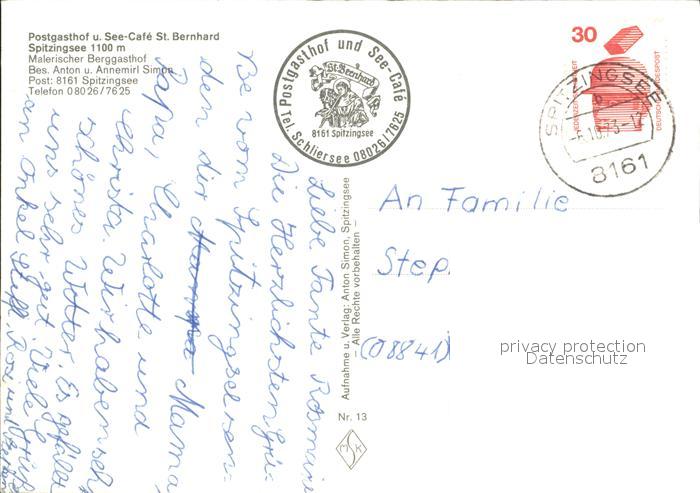 Postgasthof u. See-Café St. Bernhard
Spitzingsee 1100 m
Malerischer Berggasthof
Bes. Anton u. Annemirl Simon
Post: 8161 Spitzingsee
Telefon 08026/7625
Postgasthof und See-Café
St. Bernhard
8161 Spitzingsee
Tel. Schliersee 08026/7625
30
JEDERZEIT SICHERHEIT
DEUTSCHE BUNDESPOST
SPITZINGSEE
b
-6.10.73-12
8161
Liebe Tante Rosmarie
Die Herzlichsten Grü-
Be vom Spitzingseesen-
den dir Mama,
Papa, Charlotte und
Christa. Wir haben seh
schönes Wetter. Es gefällt
uns sehr gut. Viele Grüße
an Onkel Rosi und
Aufnahme u. Verlag: Anton Simon, Spitzingsee
– Alle Rechte vorbehalten –
An Familie
Step
(08841)
privacy protection
Datenschutz
Nr. 13
MSK